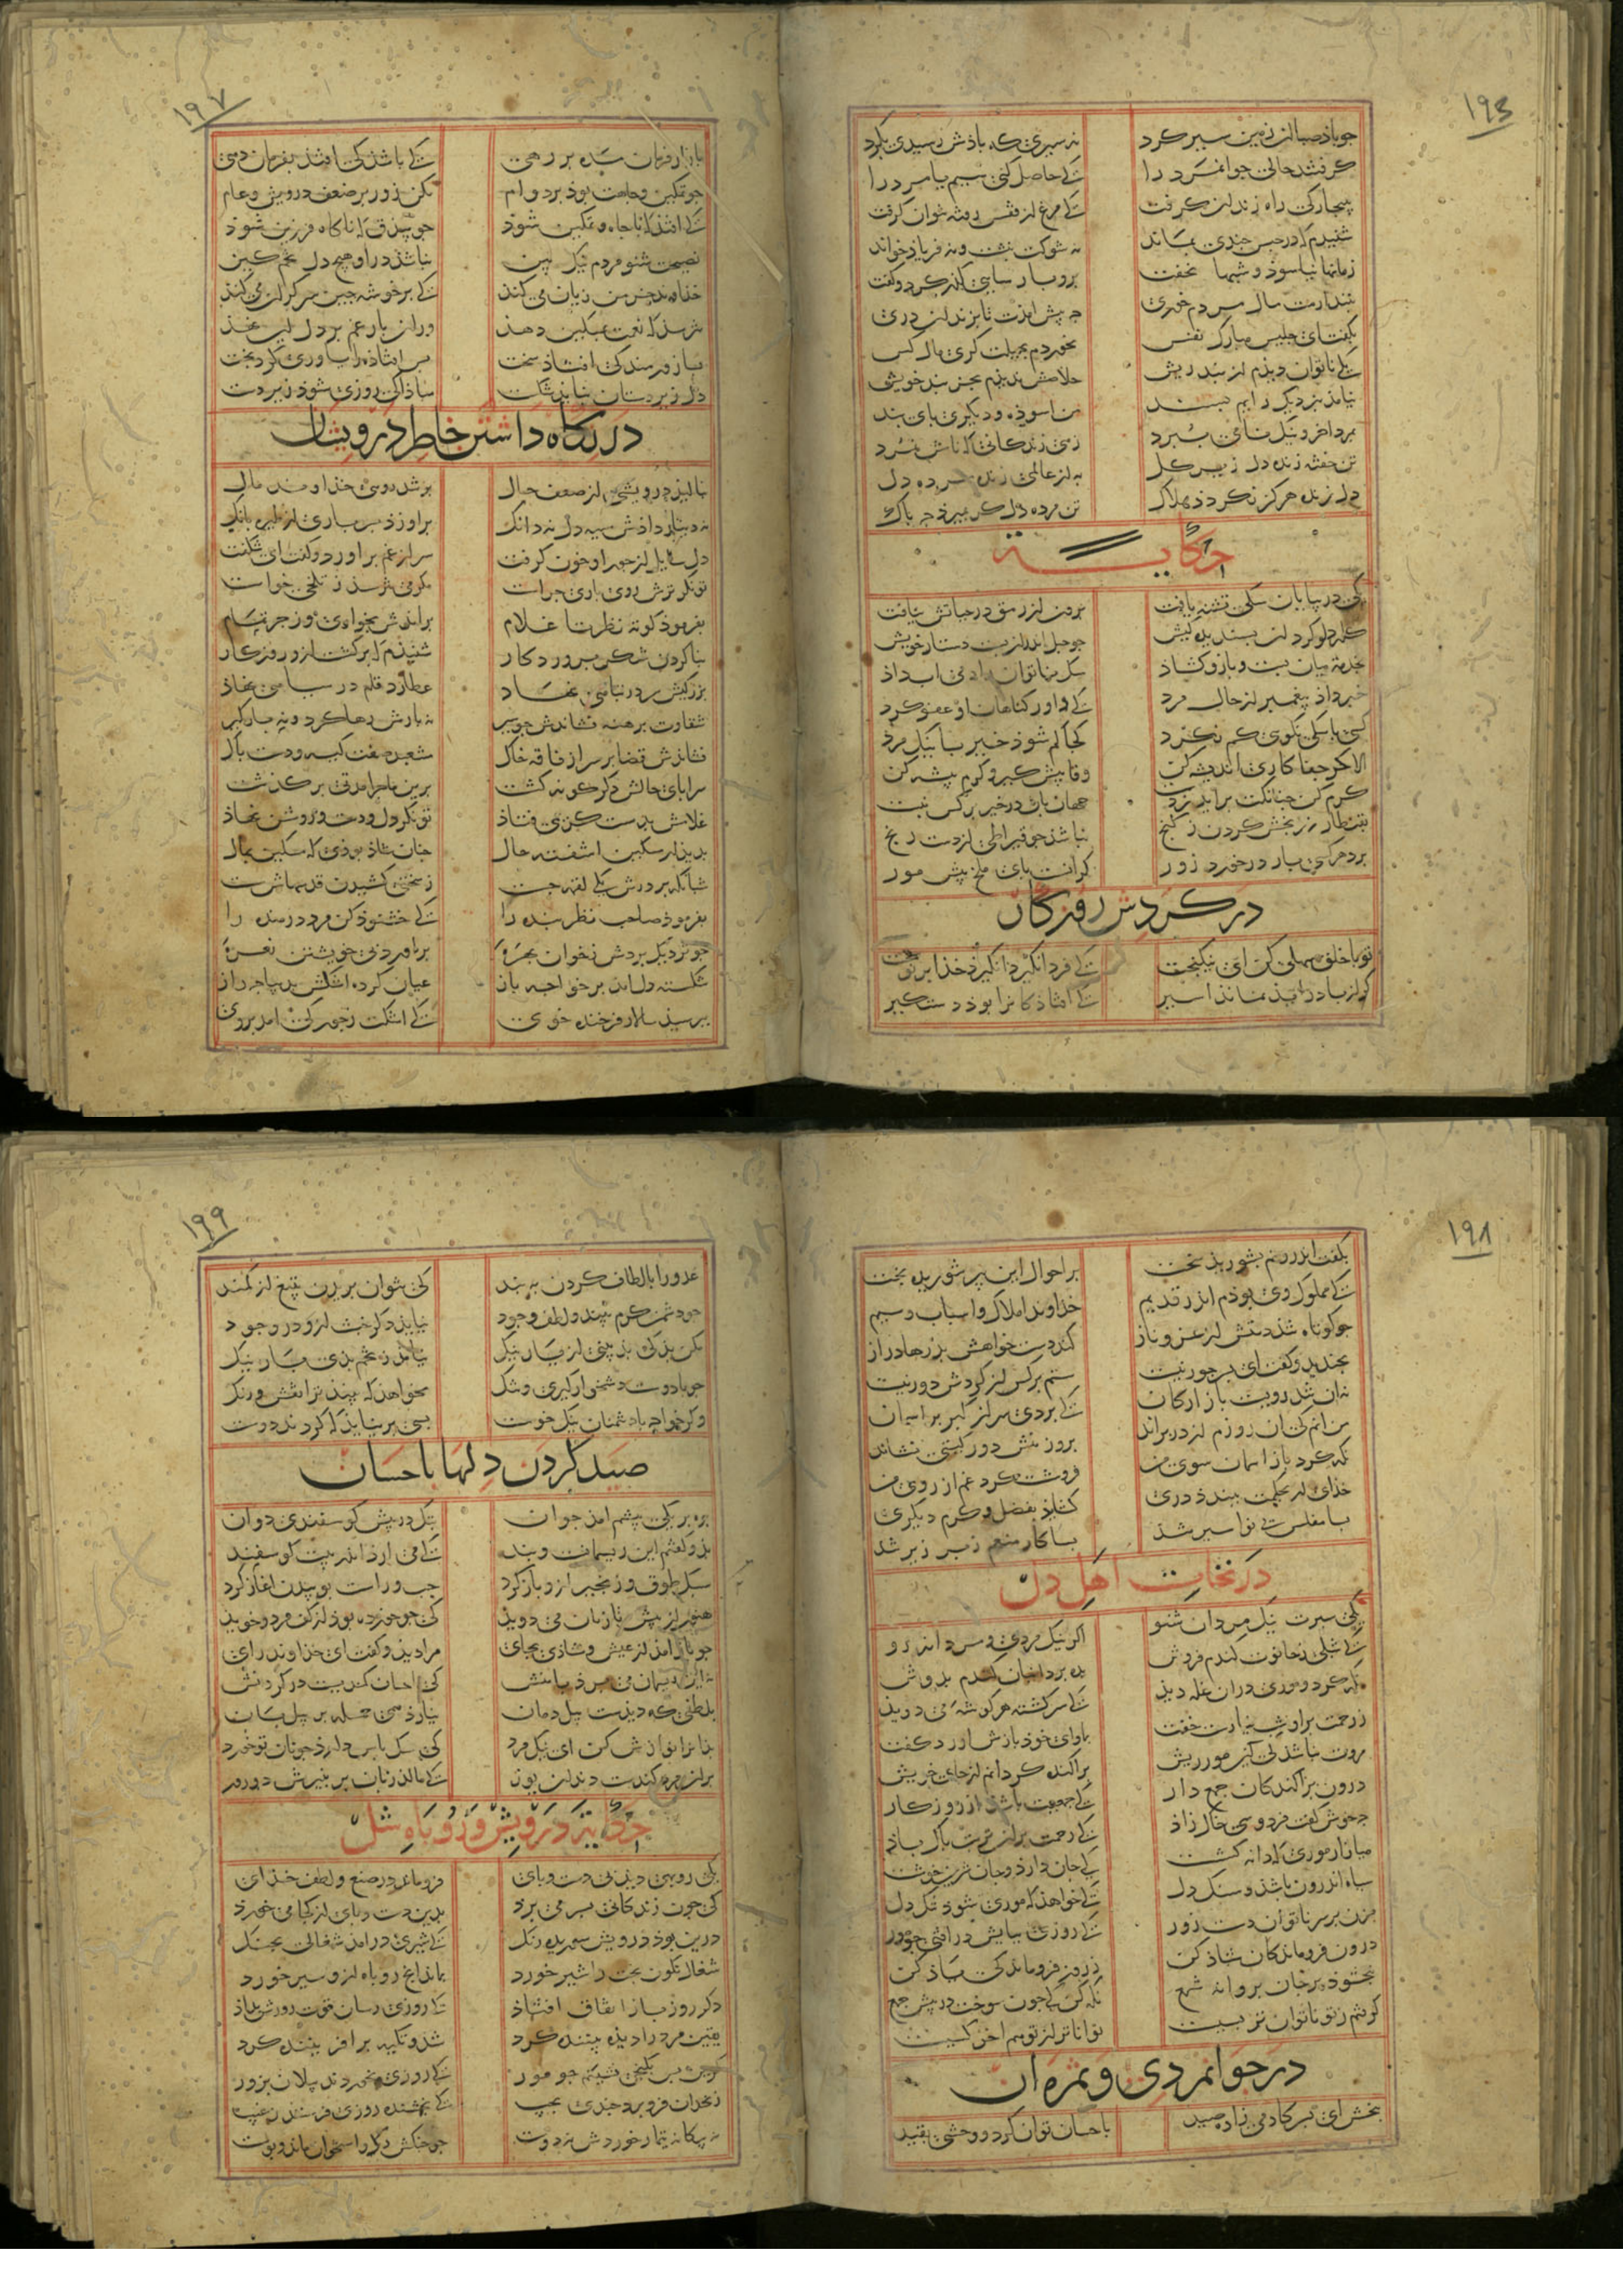 ۱۹۶
جو باذ صبا زان زمین سیر کرد نه سیری که باذش رسیدی بکرد
کرفتند حالی جوانمرد را که حاصل کنی سیم یا مرد را
بیجارکی راه زندان کرفت که مرغ از قفس رفته نتوان کرفت
شنیدم که در حبس جندی بماند نه شکوت نبشت و نه فریاد خواند
زمانها نیاسوذ و شبها نخفت برو پارسایی کذر کرد و کفت
نبندارمت مال مردم خوری جه پیش امذت تا بزندان دری
بکفت ای جلیس مبارک نفس نخوردم بحیلت کری مال کس
یکی ناتوان دیذم از بند ریش خلاصش ندیذم بجز بند خویش
نیامذ بنزدیک رایم بسند من اسوذه و دیکری بای بند
بمرد اخر و نیک نامی ببرد زهی زندکانی که نامش نمرد
تن خفته زنده دل زیر کل به از عالمی زنده مرده دل
دل زنده هرکز نکردذ هلاک تن مرده دل کر بمیرذ جه باک
حکایة
یکی در بیابان سکی تشنه یافت برون از رمق در حیاتش نیافت
کله دلو کرد ان بسندیده کیش جو حبل اندران بست دستار خویش
بخدمة میان بست و بازو کشاذ سک ناتوان را دمی اب داذ
خبر داذ پیغمبر از حال مرد که داور کناهان او عفو کرد
کسی با سکی نکوی کم نکرد کجا کم شوذ خیر با نیک مرد
الا کر جفاکاری اندیشه کن وفا پیش کیر و کرم پیشه کن
کرم کن جنانکت براید ز دست جهان بان در خیر بر کس نبست
بقنطار زر بخش کردن ز کنج نباشد جو قیراطی از دست رنج
برد هر کسی بار در خورد زور کرانست بای ملخ پیش مور
در کردش روزکار
تو با خلق سهلی کن ای نیکبخت که فردا نکیرد خذا بر تو سخت
کر از با درافتذ نماند اسیر که افتاذکانرا بوذ دستکیر
۱۹۷
بازار فرمان مده بر رهی که باشذ که افتذ بفرمان دهی
جو تمکین و جاهت بوذ بر دوام مکن زور بر ضعف درویش و عام
که افتذ که با جاه و تمکین شوذ جو بیذق که ناکاه فرزین شوذ
نصیحت شنو مردم نیک بین نباشذ در او هیچ دل تخم کین
خذاوند خرمن زیان می کند که بر خوشه جین سر کران می کند
نترسذ که نعمت بمسکین دهند وزان بار غم بر دل این نهند
بسا زورمندا که افتاذ سخت بس افتاذه را یاوری کرد بخت
دل زیردستان نبایذ شکست مباذا که روزی شوذ زیردست
در نکاه داشتن خاطر درویشان
بنالیذ درویشی از ضعف حال بر تندرویی خذاوند مال
نه دینار داذش سیه دل نه دانک برو زذ بسرباری از طیره بانک
دل سایل از جور او خون کرفت سر از غم براورد و کفت ای شکفت
توانکر ترش روی باری جراست مکر می نترسذ ز تلخی خواست
بفرموذ کوته نظر تا غلام براندش بخواری و زجر تمام
بنا کردن شکر برورد کار شنیذم که برکشت ازو روزکار
بزرکیش سر در تباهی نهاد عطارد قلم در سیاهی نهاذ
شقاوت برهنه نشاندش جو سیر نه بارش رها کرد و نه بارکیر
فشاندش قضا بر سر از فاقه خاک مشعبد صفت کیسه و دست باک
سرابای حالش دکر کونه کشت برین ماجرا مدتی برکذشت
غلامش بدست کریمی فتاذ توانکر دل و دست و روشن نهاذ
بدیذار مسکین اشفته حال جنان شاذ بوذی که مسکین بمال
شبانکه بر درش یکی لقمه جست ز سختی کشیدن قدمهاش سست
بفرموذ صاحب نظر بنده را که خشنوذ کن مرد درمنده را
جو نزدیک بردش ز خوان بهرهٔ براورد بی خویشتن نعرهٔ
شکسته دل امد بر خواجه باز عیان کرده اشکش بدیباجه راز
ببرسیذ سالار فرخنده خوی که اشکت ز جور که امد بروی
۱۹۸
بکفت اندرونم بشوریذ سخت بر احوال این پیر شوریده بخت
که مملوک وی بوذم اندر قدیم خذاوند املاک و اسباب و سیم
جو کوتاه شذ دستش از عز و ناز کند دست خواهش بدرها دراز
بخندید و کفت ای بسر جور نیست ستم بر کس از کردش دور نیست
نه ان تندرویست بازارکان که بردی سر از کبر بر اسمان
من انم که ان روزم از در براند بروز منش دور کیتی نشاند
نکه کرد باز اسمان سوی من فروشست کرد غم از روی من
خذای ار بحکمت ببندذ دری کشایذ بفضل و کرم دیکری
بسا مفلس بی نوا سیر شذ بسا کار منعم زبر زیر شذ
در نجات اهل دل
یکی سیرت نیک مردان شنو اکر نیک مردی و مردانه رو
که شبلی ز حانوت کندم فروش بده برد انبان کندم بدوش
نکه کرد و موری دران غله دیذ که سرکشته هر کوشه می دویذ
ز رحمت برو شب نیارست خفت باوای خود بازش اورد و کفت
مروت نباشذ که این مور ریش براکنده کردانم از جای خویش
درون براکندکان جمع دار که جمعیت باشذ از روزکار
جه خوش کفت فردوسی باک زاذ که رحمت بران تربت باک باذ
میازار موری که دانه کشست که جان دارذ و جان شیرین خوشست
سیاه اندرون باشذ و سنک دل که خواهذ که موری شوذ تنک دل
مزن بر سر ناتوان دست زور که روزی ببایش درافتی جو مور
درون فروماندکان شاذ کن ز روز فروماندکی یاذ کن
نبخشوذ بر حال بروانه شمع نکه کن که جون سوخت در پیش جمع
کرفتم ز تو ناتوان تر بسیست تواناتر از تو هم اخر کسیست
در جوانمردی و ثمره ان
ببخش ای بسر کادمی زاده صید باحسان توان کرد و وحشی بقید
۱۹۹
عدو را بالطاف کردن ببند که نتوان بریدن بتیغ این کمند
جو دشمن کرم بیند و لطف و جود نیایذ دکر خبث ازو در وجود
مکن بد که بد بینی از یار نیک نیاید ز تخم بدی بار نیک
جو با دوست دشخوار کیری و تنک نخواهذ که بیند ترا نقش و رنک
وکر خواجه با دشمنان نیک خوست بسی بر نیایذ که کردند دوست
صید کردن دلها باحسان
بره بر یکی پیشم امذ جوان بتک در پیش کوسفندی دوان
بذو کفتم این ریسمانست و بند که می ارد اندر پیت کوسفند
سبک طوق و زنجیر ازو باز کرد جب و راست بوییدن اغاز کرد
هنوز از پیش تازیان می دویذ که جو خورده بوذ از کف مرد و خویذ
جو باز امذ از عیش و شاذی بجای مرا دیذ و کفت ای خذاوند رای
نه این ریسمان می برد با منش که احسان کمندیست در کردنش
بلطفی که دیذست پیل دمان نیارذ همی حمله بر پیل بان
بذانرا نوازش کن ای نیک مرد که سک باس دارذ جو نان تو خورد
بران مرد کندست دندان یوز که مالذ زبان بر پنیرش دو روز
حکایت درویش و روباه شل
یکی روبهی دیذ بی دست و بای فروماند در صنع و لطف خذای
که جون زندکانی بسر می برذ بدین دست و بای از کجا می خورذ
درین بوذ درویش شوریده رنک که شیری درامذ شغالی بجنک
شغال نکون بخت را شیر خورد بماند انج روباه ازو سیر خورد
دکر روز باز اتفاق افتاذ که روزی رسان قوت روزش بداذ
یقین مرد را دیذه بیننده کرد شذ و تکیه بر افریننده کرد
کزین بس بکنجی نشینم جو مور که روزی نخوردند پیلان بزور
زنخدان فرو برد جندی بجیب که بخشنده روزی فرستد ز غیب
نه بیکانه تیمار خوردش نه دوست جو جنکش رک و استخوان ماند و بوست